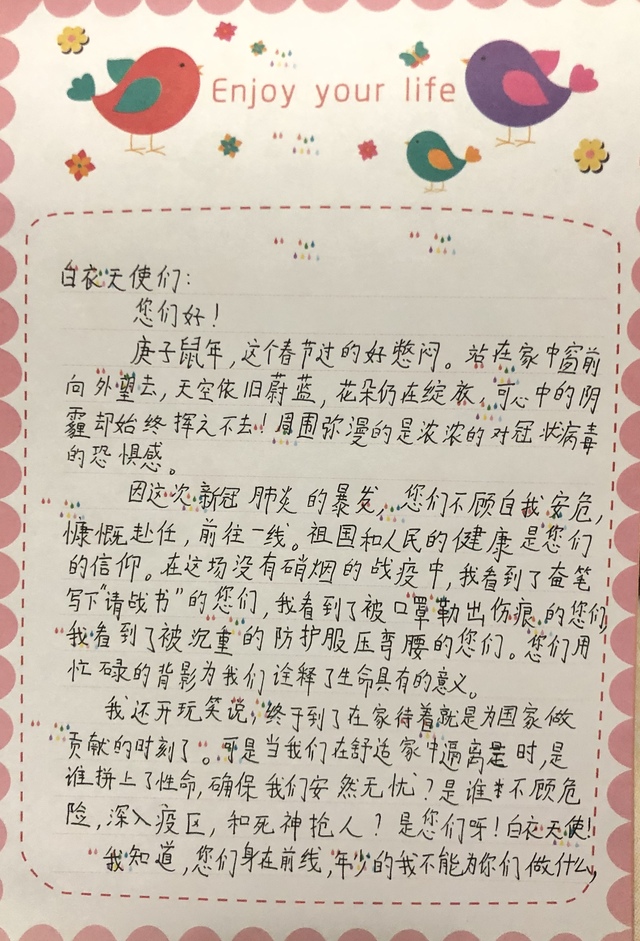 Enjoy your life
白衣天使们：
您们好！
庚子鼠年，这个春节过的好憋闷。站在家中窗前
向外望去，天空依旧蔚蓝，花朵仍在绽放，可心中的阴
霾却始终挥之不去！周围弥漫的是浓浓的对冠状病毒
的恐惧感。
因这次新冠肺炎的暴发，您们不顾自我安危，
慷慨赴任，前往一线。祖国和人民的健康是您们
的信仰。在这场没有硝烟的战疫中，我看到了奋笔
写下“请战书”的您们，我看到了被口罩勒出伤痕的您们，
我看到了被沉重的防护服压弯腰的您们。您们用
忙碌的背影为我们诠释了生命具有的意义。
我还开玩笑说，终于到了在家待着就是为国家做
贡献的时刻了。可是当我们在舒适家中隔离是时，是
谁拼上了性命，确保我们安然无忧？是谁不顾危
险，深入疫区，和死神抢人？是您们呀！白衣天使！
我知道，您们身在前线，年少的我不能为你们做什么，